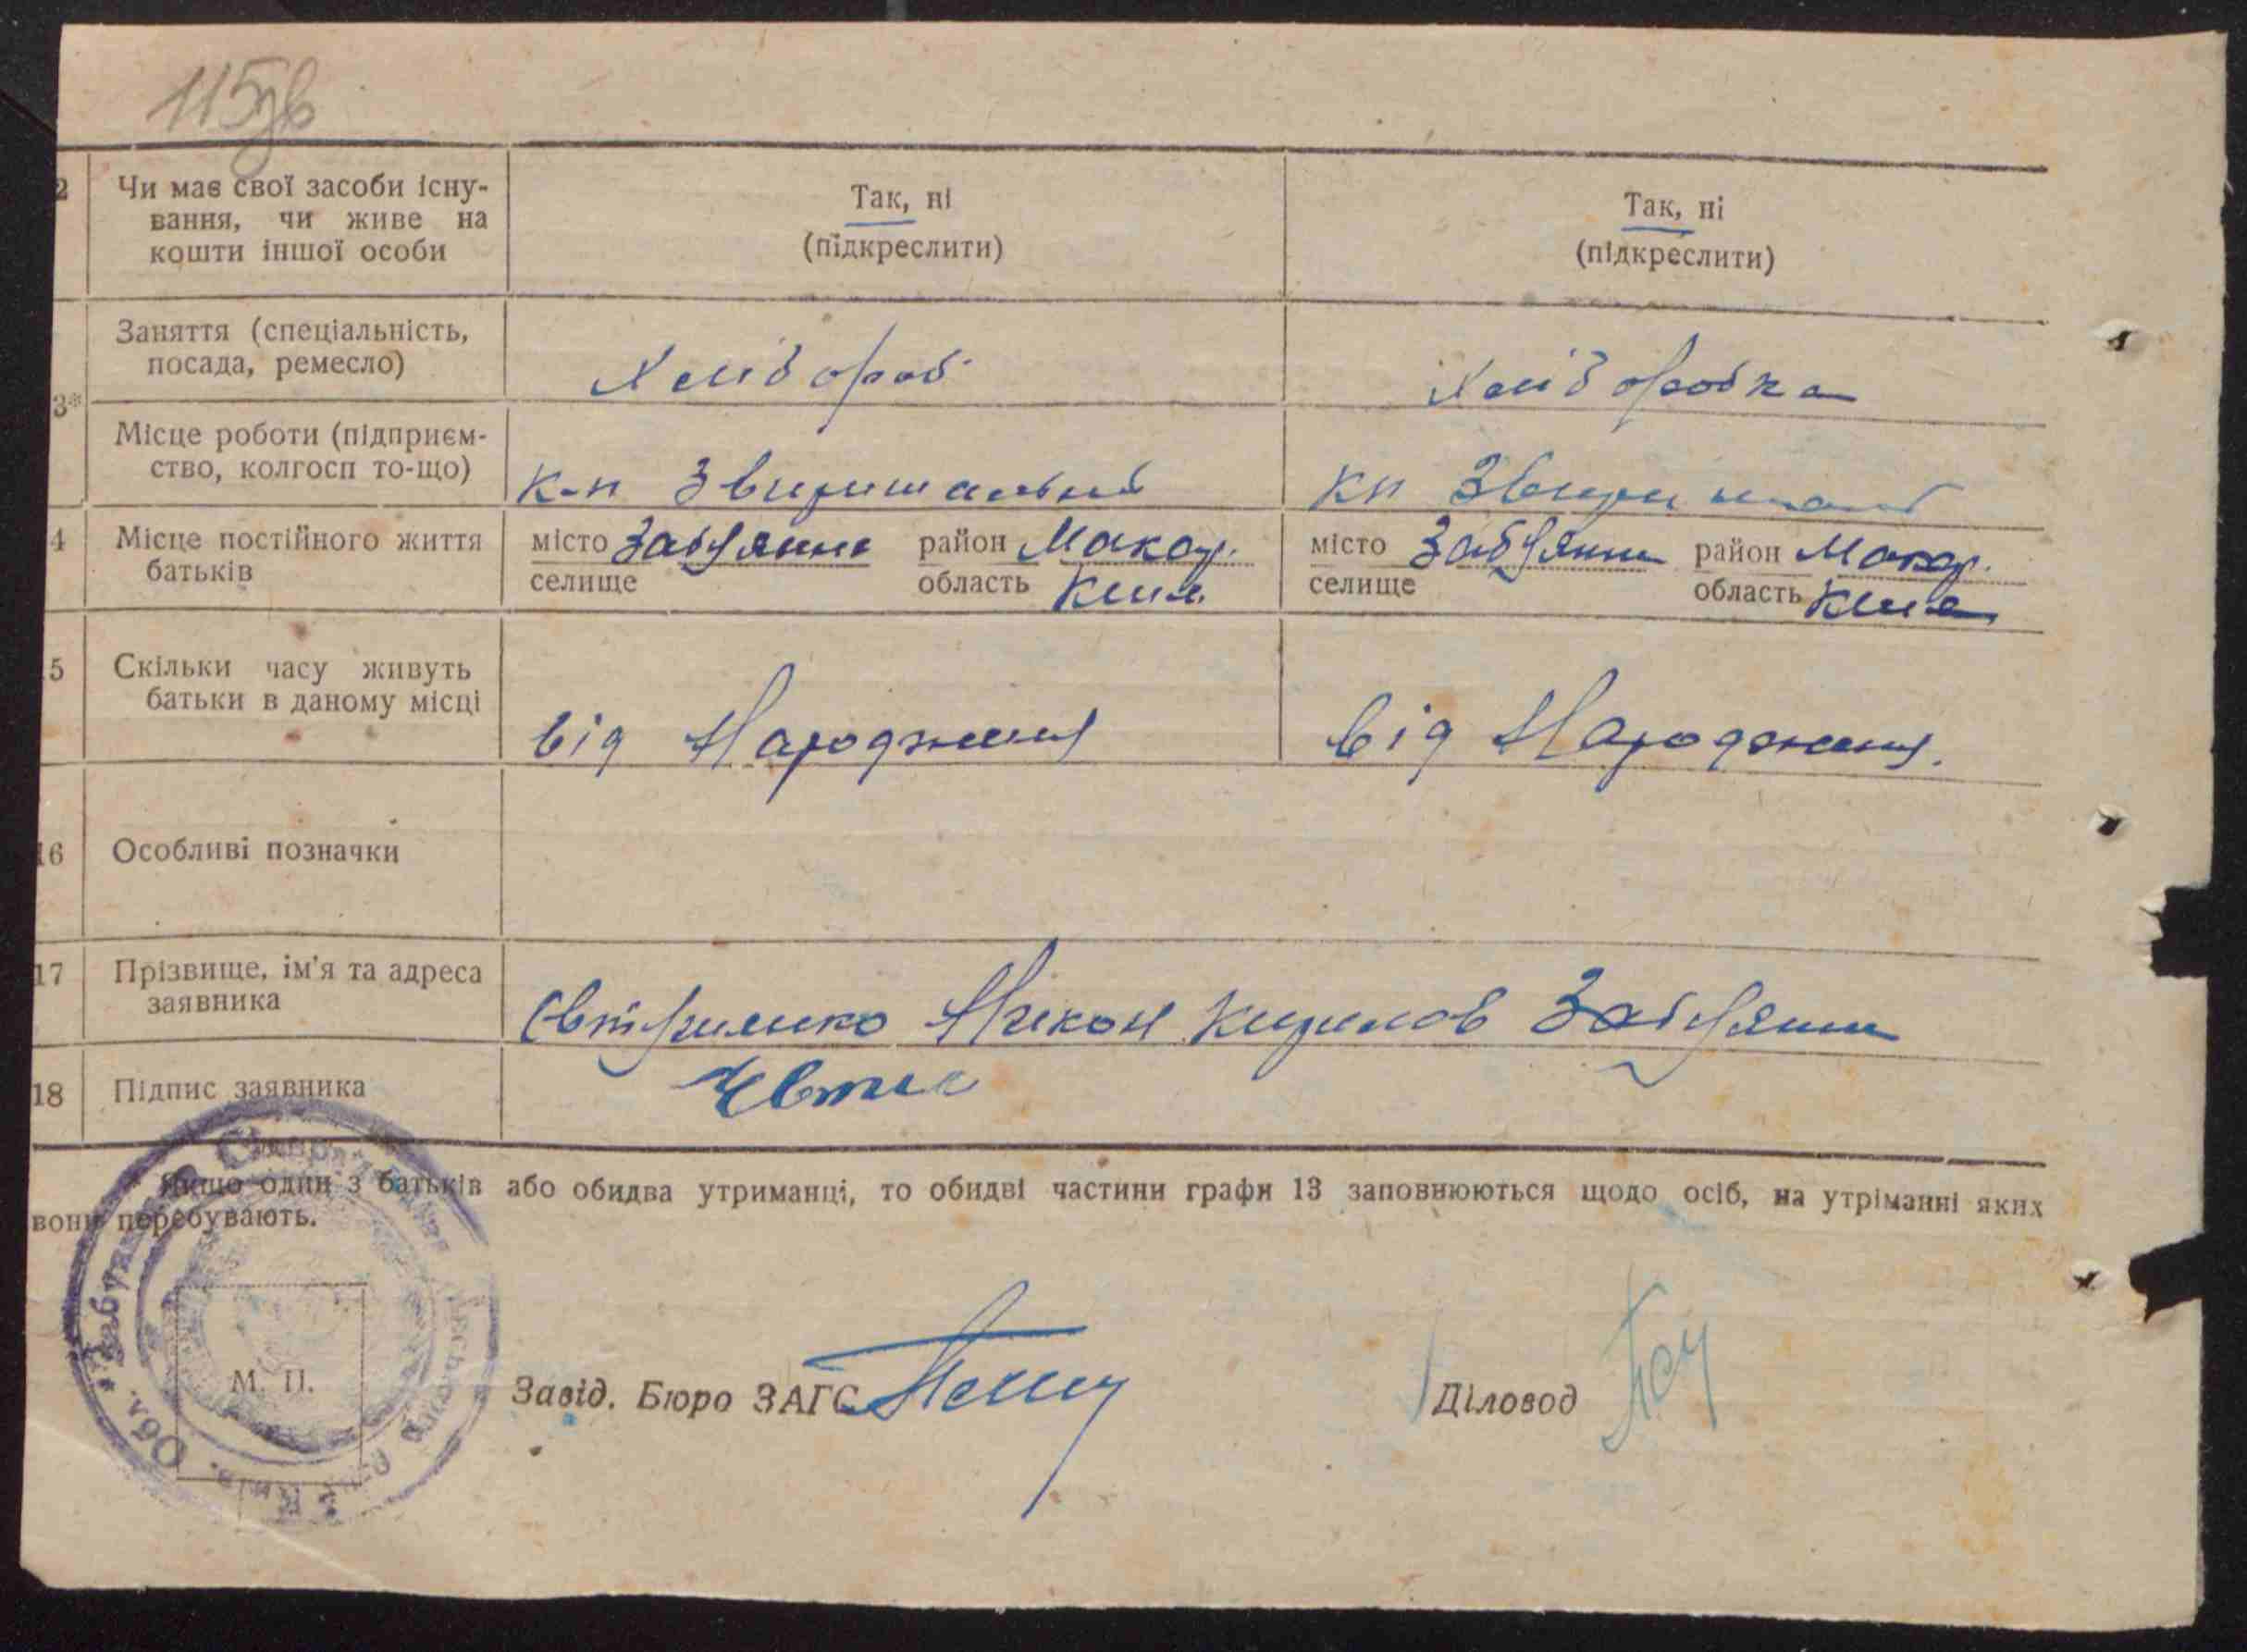 115зв
2 Чи має свої засоби існу-
вання, чи живе на
кошти іншої особи
Так, ні
(підкреслити)
Так, ні
(підкреслити)
3*
Заняття (спеціальність,
посада, ремесло)
Хлібороб
Хліборобка
Місце роботи (підприєм-
ство, колгосп то-що)
к-п
кп
4 Місце постійного життя
батьків
місто Забуяння район Макар.
селище область Київ.
місто Забуяння район Макар.
селище область Київ
5 Скільки часу живуть
батьки в даному місці
від Народження
від Народження.
16 Особливі позначки
17 Прізвище, ім'я та адреса
заявника
Никон Кирилов Забуяння
18 Підпис заявника
* Якщо один з батьків або обидва утриманці, то обидві частини графи 13 заповнюються щодо осіб, на утріманні яких
вони перебувають.
М. П.
Завід. Бюро ЗАГС
Діловод
Київ. Обл.